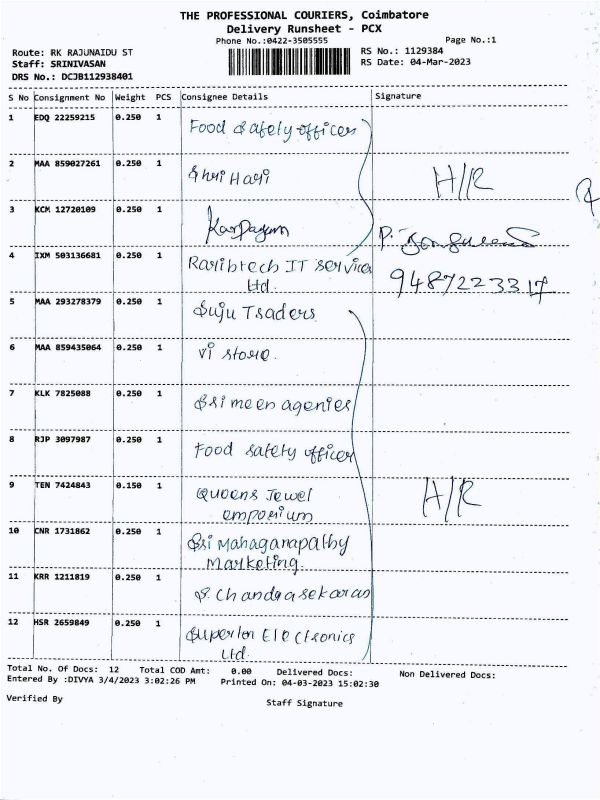 THE PROFESSIONAL COURIERS, Coimbatore
Delivery Runsheet - PCX
Phone No.:0422-3505555
Page No.:1
Route: RK RAJUNAIDU ST
Staff: SRINIVASAN
DRS No.: DCJB112938401
RS No.: 1129384
RS Date: 04-Mar-2023
S No Consignment No Weight PCS Consignee Details Signature
1 EDQ 22259215 0.250 1 Food Safety officer
2 MAA 859027261 0.250 1 Shri Hari H/R
3 KCM 12720109 0.250 1 Karpagam
P.
4 IXM 503136681 0.250 1 IT service
Ltd. 9487223317
5 MAA 293278379 0.250 1 Suju Traders
6 MAA 859435064 0.250 1 Vi store.
7 KLK 7825088 0.250 1 Sri meen agenies
8 RJP 3097987 0.250 1 Food safety officer
9 TEN 7424843 0.150 1 Queens Jewel H/R
emporium
10 CNR 1731862 0.250 1 Sri Mahaganapathy
Marketing.
11 KRR 1211819 0.250 1 S. Chandrasekaran
12 HSR 2659849 0.250 1 Electronics
Ltd.
Total No. Of Docs: 12 Total COD Amt: 0.00 Delivered Docs: Non Delivered Docs:
Entered By :DIVYA 3/4/2023 3:02:26 PM Printed On: 04-03-2023 15:02:30
Verified By Staff Signature